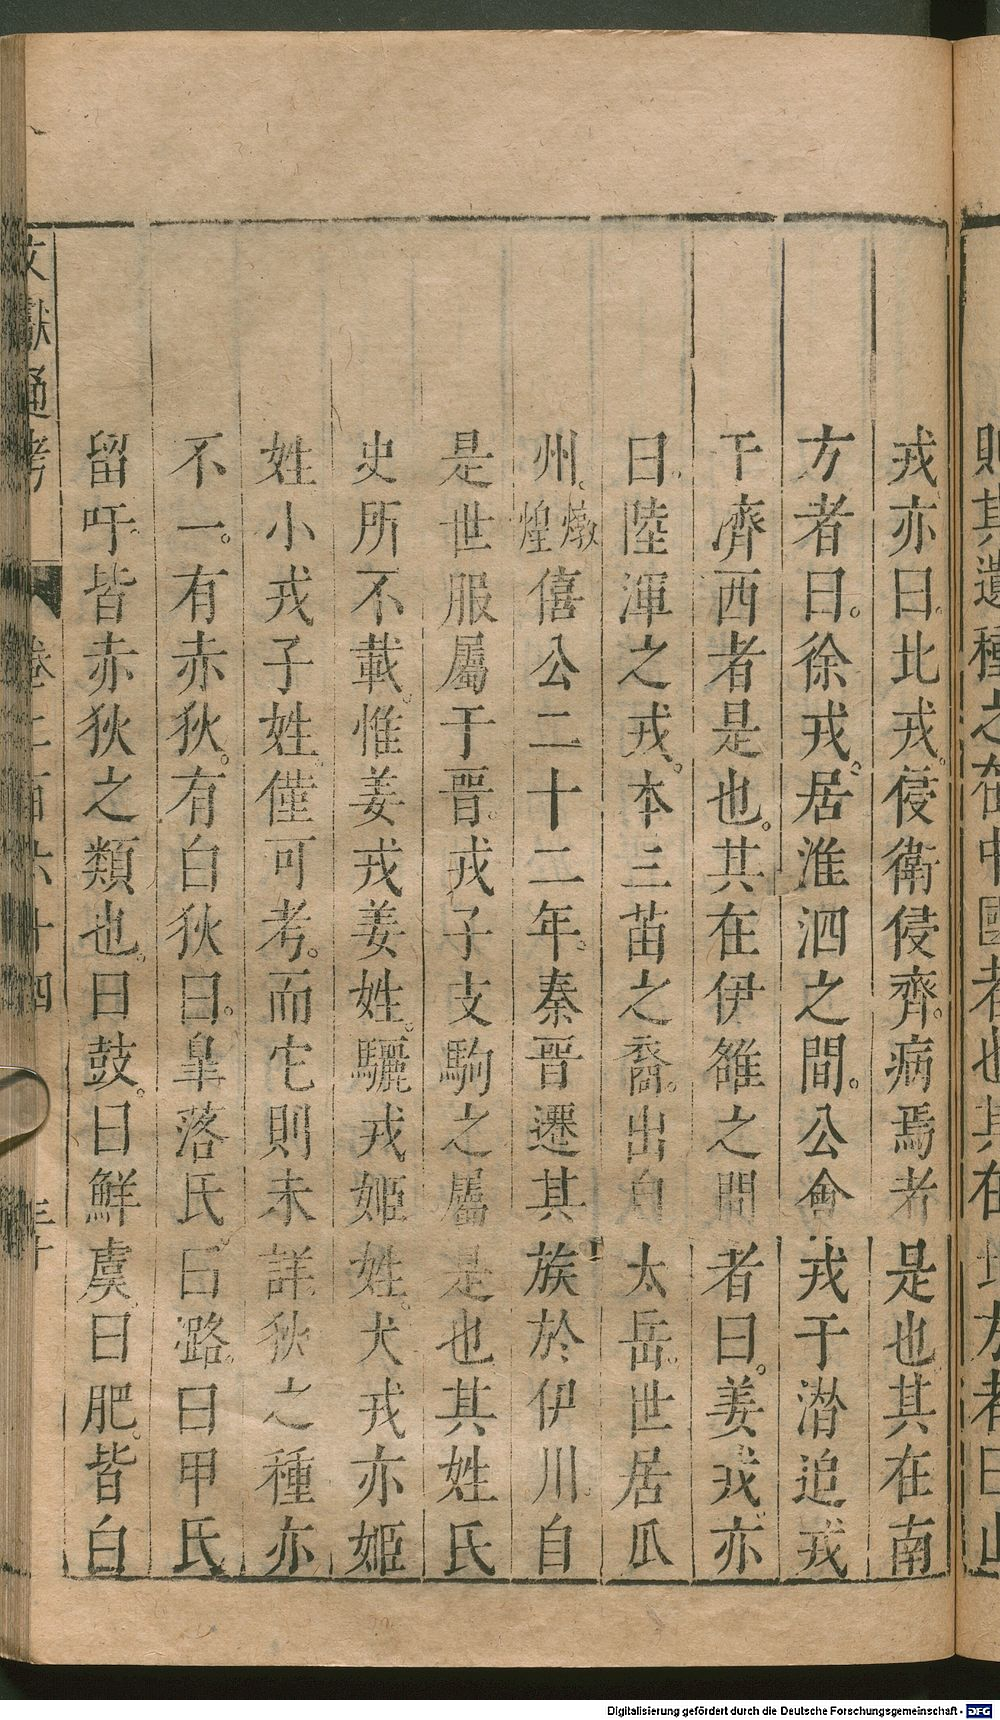 則其遺種之在中國者也其在北方者曰山
戎亦曰北戎。侵衛侵齊。病焉者是也其在南
方者曰。徐戎。居淮泗之間。公會戎于潛追戎
于濟西者是也。其在伊雒之間者曰。姜戎亦
曰。陸渾之戎。本三苗之裔。出自太岳。世居瓜
州。燉煌僖公二十二年。秦晉遷其族於伊川。自
是世服屬于晉。戎子支駒之屬是也其姓氏
史所不載。惟姜戎姜姓。驪戎姬姓。犬戎亦姬
姓小戎子姓。僅可考。而它則未詳狄之種亦
不一。有赤狄。有白狄曰。皐落氏曰潞。曰甲氏
留吁。皆赤狄之類也。曰鼓。曰鮮虞。曰肥。皆白
文獻通考 卷三百六十四 三十
Digitalisierung gefördert durch die Deutsche Forschungsgemeinschaft - DFG